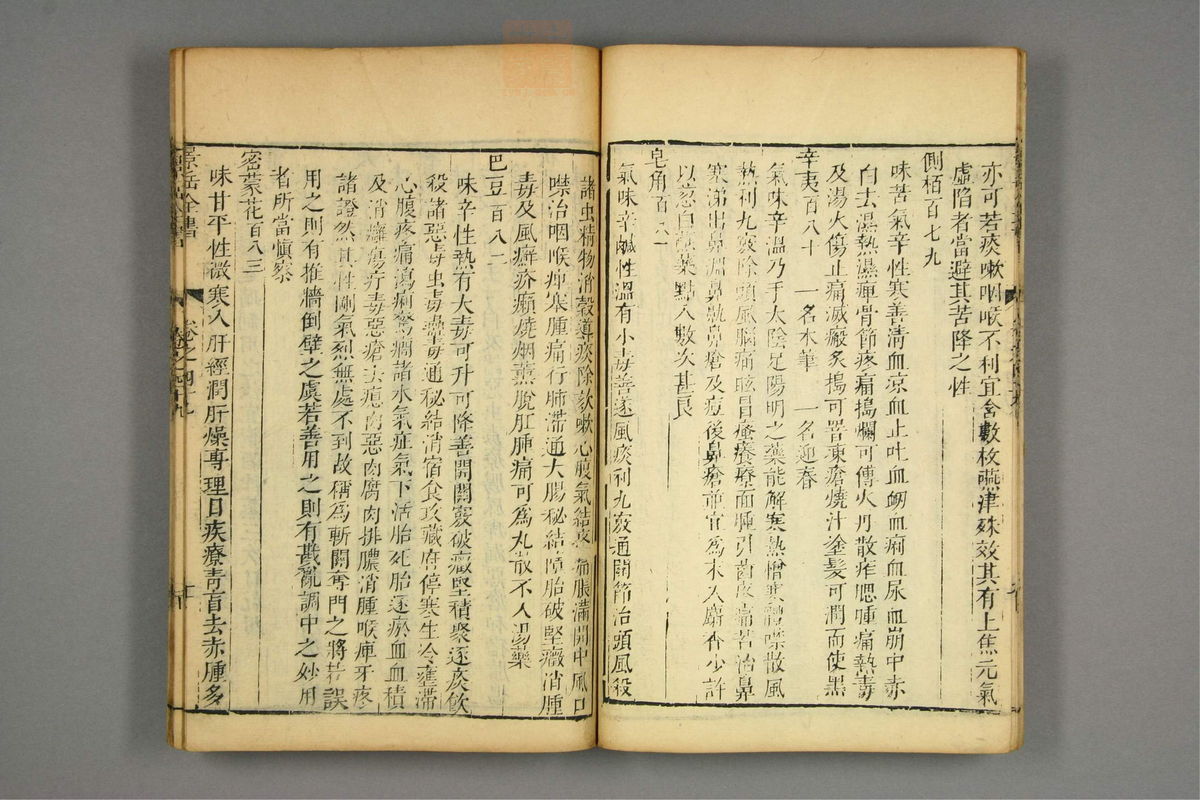 亦可若痰嗽咽喉不利宜含數枚嚥津殊效其有上焦元氣
虛陷者當避其苦降之性
側栢百七九
味苦氣辛性寒善清血凉血止吐血衂血痢血尿血崩中赤
白去濕熱濕痺骨節疼痛搗爛可傅火丹散痄腮腫痛熱毒
及湯火傷止痛滅瘢炙搗可罯凍瘡燒汁塗髮可潤而使黑
辛夷百八十 一名木筆 一名迎春
氣味辛溫乃手太陰足陽明之藥能解寒熱憎寒體噤散風
熱利九竅除頭風腦痛眩冒瘙癢療面腫引齒疼痛若治鼻
寒涕出鼻淵鼻鼽鼻瘡及痘後鼻瘡並宜為末入麝香少許
以葱白蘸藥點入數次甚良
皂角百八一
氣味辛鹹性溫有小毒善逐風痰利九竅通關節治頭風殺
諸虫精物消穀導痰除欬嗽心腹氣結疼痛脹滿開中風口
噤治咽喉痺塞腫痛行肺滯通大腸秘結墮胎破堅癥消腫
毒及風癬疥癩燒烟薰脫肛腫痛可為丸散不入湯藥
巴豆百八二
味辛性熱有大毒可升可降善開關竅破癥堅積聚逐痰飲
殺諸惡毒虫毒蠱毒通秘結消宿食攻藏府停寒生冷壅滯
心腹疼痛瀉痢驚癇諸水氣疝氣下活胎死胎逐瘀血血積
及消癰瘍疔毒惡瘡去瘜肉惡肉腐肉排膿消腫喉痺牙疼
諸證然其性剛氣烈無處不到故稱為斬關奪門之將若誤
用之則有推牆倒壁之虞若善用之則有戡亂調中之妙用
者所當愼察
密蒙花百八三
味甘平性微寒入肝經潤肝燥專理目疾療靑盲去赤腫多
景岳全書
卷之四十九